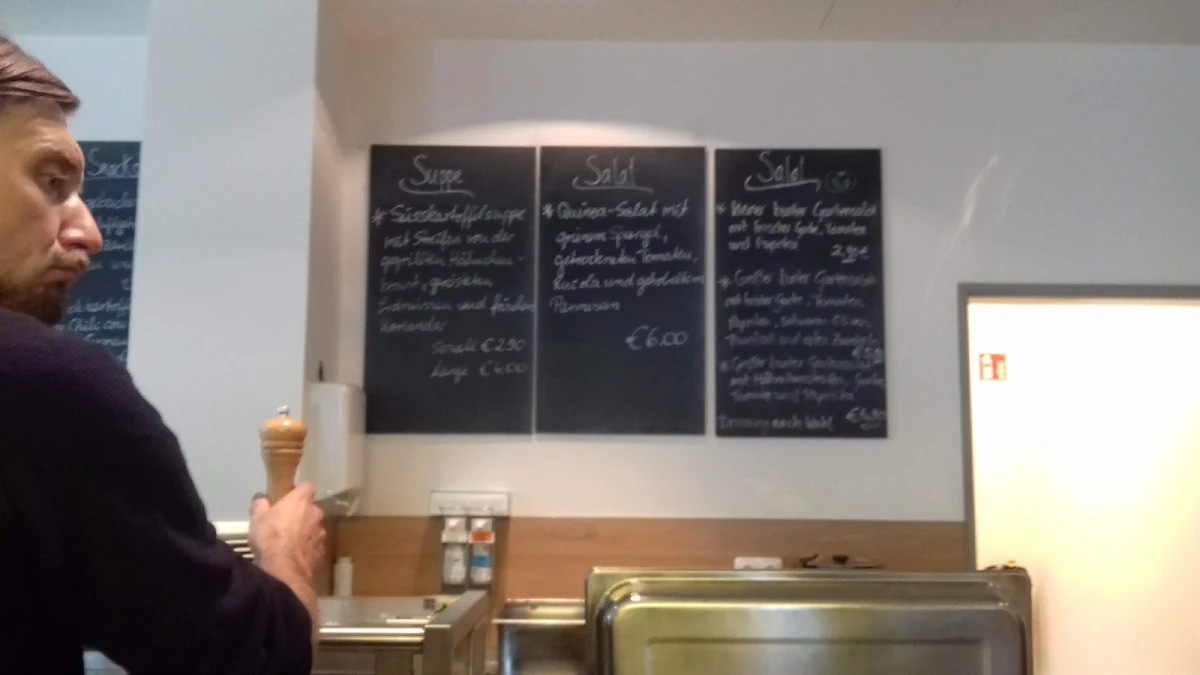 Snacks
Suppe
* Süsskartoffelsuppe
mit Streifen von der
gegrillten Hähnchen-
brust, gerösteten
Erdnüssen und frischem
Koriander
small € 2.90
large € 4.00
Salat
* Quinoa-Salat mit
grünem Spargel,
getrockneten Tomaten,
Rucola und gehobeltem
Parmesan
€ 6.00
Salat
* kleiner bunter Gartensalat
mit frischer Gurke, Tomaten
und Paprika
2,90€
* Großer bunter Gartensalat
mit frischer Gurke, Tomaten,
Paprika, schwarze Oliven,
Thunfisch und roten Zwiebeln
* Großer bunter Gartensalat
mit Hähnchenstreifen, Gurken
Tomaten und Paprika
Dressing nach Wahl